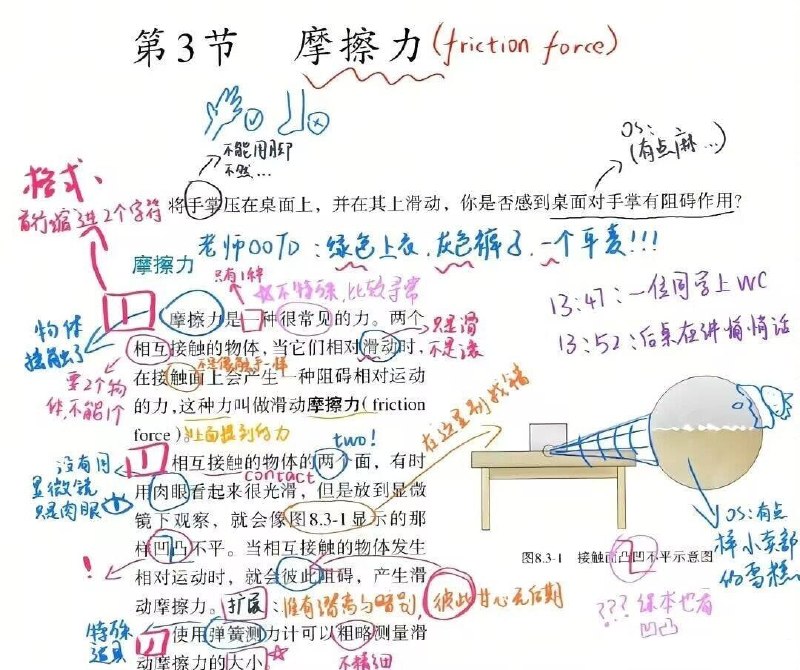 第3节 摩擦力(friction force)
不能用脚
不然...
OS:
(有点麻...)
格式、
首行缩进2个字符
将手掌压在桌面上，并在其上滑动，你是否感到桌面对手掌有阻碍作用？
老师OOTD：绿色上衣、灰色裤子、一个耳麦!!!
摩擦力
只有1种
不特殊，比较寻常
13:47：一位同学上WC
13:52：后桌在讲悄悄话
摩擦力是一种很常见的力。两个
物体
接触了
相互接触的物体，当它们相对滑动时，
只是滑
不是滚
在接触面上会产生一种阻碍相对运动
要2个物
体，不能1个
的力，这种力叫做滑动摩擦力(friction
force)。
上面提到的力
在这里别找错
two!
相互接触的物体的两个面，有时
contact
没有用
显微镜
只是肉眼
用肉眼看起来很光滑，但是放到显微
镜下观察，就会像图8.3-1显示的那
样凹凸不平。当相互接触的物体发生
!
相对运动时，就会彼此阻碍，产生滑
动摩擦力。
扩展：唯有潜离与暗别，彼此甘心无后期
特殊
道具
使用弹簧测力计可以粗略测量滑
动摩擦力的大小。
不精细
图8.3-1 接触面凸凹不平示意图
OS:有点
像小东部
的雪糕。
???课本也有
凹凸